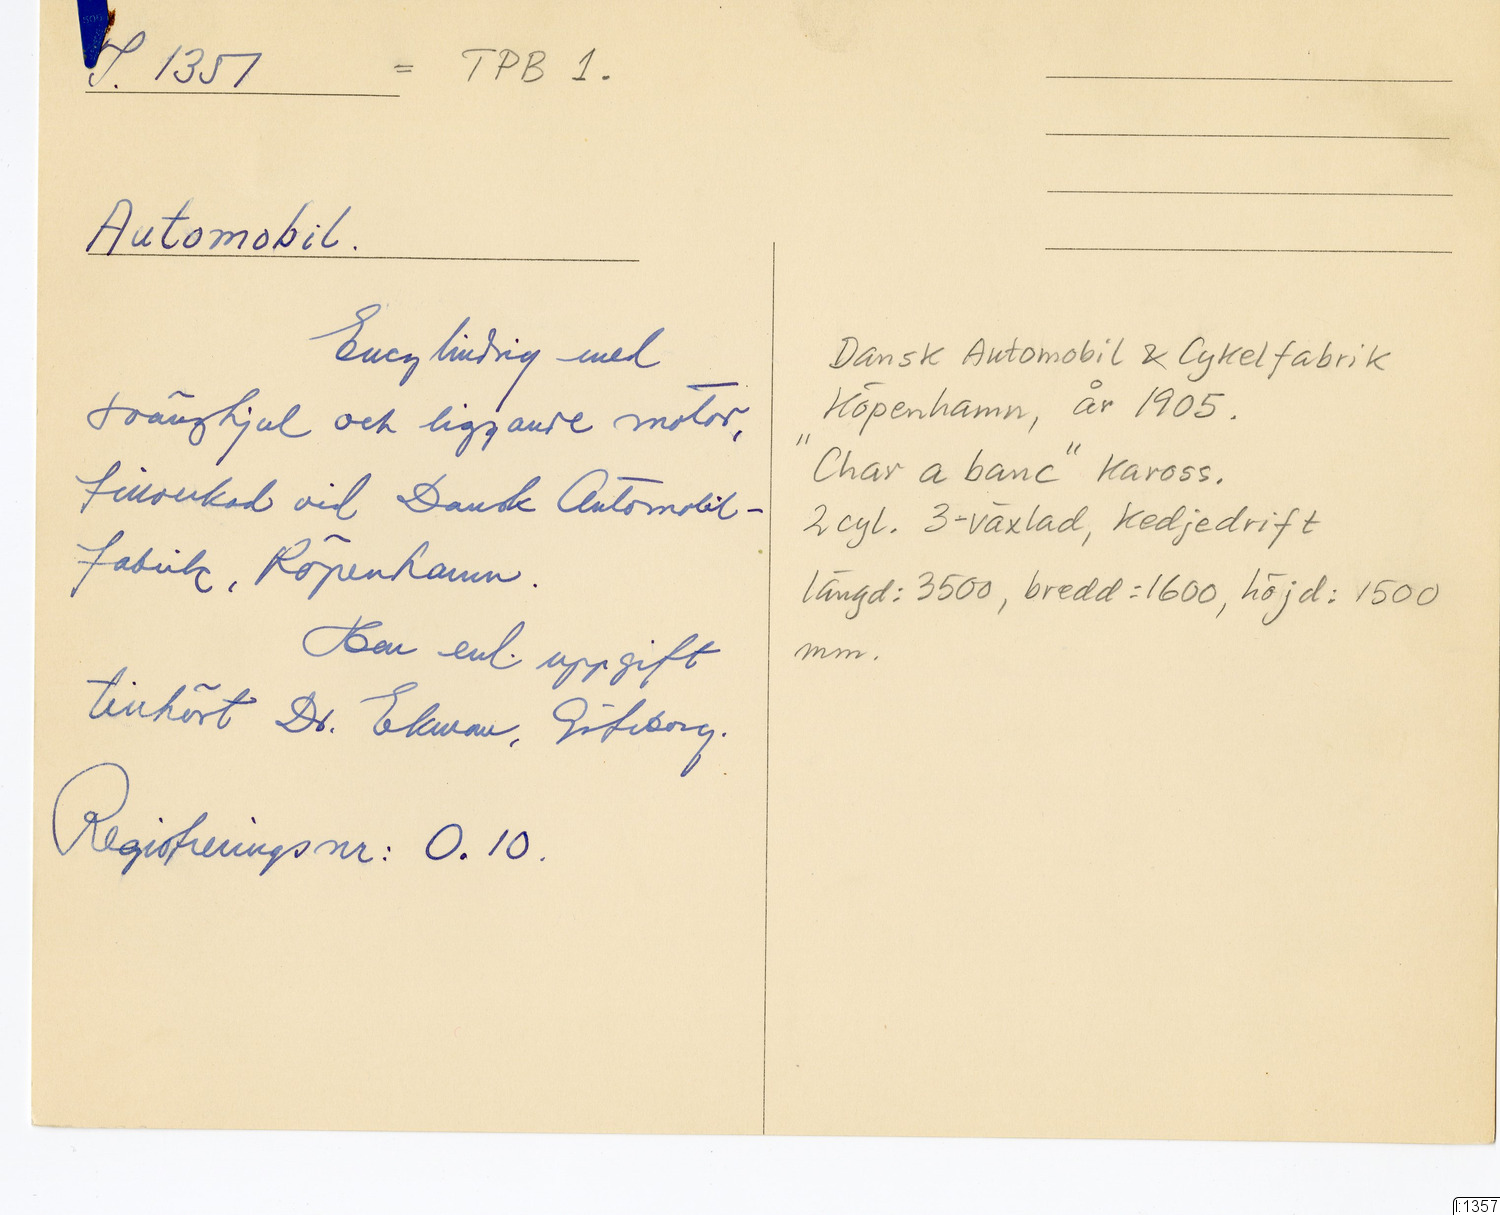 I. 1357 = TPB 1.
Automobil.
Encylindrig med
svänghjul och liggande motor,
tillverkad vid Dansk Automobil-
fabrik, Köpenhamn.
Har enl. uppgift
tillhört Dr. Ekman, Göteborg.
Registreringsnr: O. 10.
Dansk Automobil & Cykelfabrik
Köpenhamn, år 1905.
"Char a banc" Kaross.
2 cyl. 3-växlad, Kedjedrift
längd: 3500, bredd: 1600, höjd: 1500
mm.
I:1357